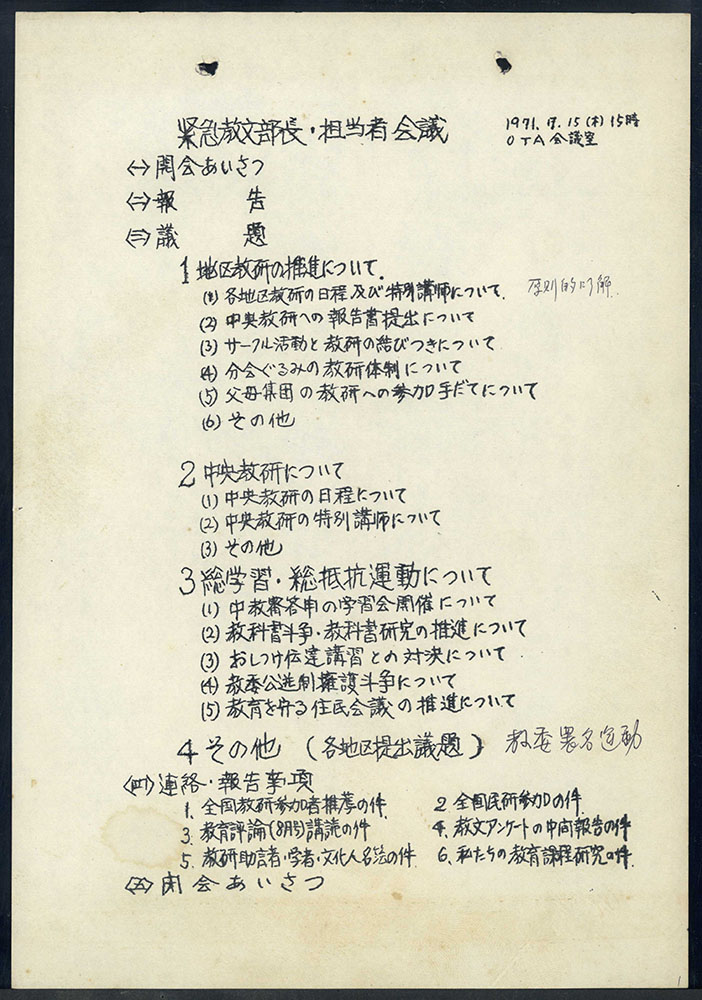 緊急教文部長・担当者会議
1971.7.15(木)15時
OTA会議室
㈠開会あいさつ
㈡報 告
㈢議 題
1 地区教研の推進について.
(1) 各地区教研の日程及び特別講師について. 原則的了解.
(2) 中央教研への報告書提出について
(3) サークル活動と教研の結びつきについて
(4) 分会ぐるみの教研体制について
(5) 父母集団の教研への参加手だてについて
(6) その他
2 中央教研について
(1) 中央教研の日程について
(2) 中央教研の特別講師について
(3) その他
3 総学習・総抵抗運動について
(1) 中教審答申の学習会開催について
(2) 教科書斗争・教科書研究の推進について
(3) おしつけ伝達講習との対決について
(4) 教委公選制擁護斗争について
(5) 教育を守る住民会議の推進について
4 その他 (各地区提出議題) 教委署名運動
㈣連絡・報告事項
1. 全国教研参加者推荐の件 2. 全国民研参加の件
3. 教育評論(8月号)講読の件 4. 教文アンケートの中間報告の件
5. 教研助言者・学者・文化人名簿の件 6. 私たちの教育課程研究の件
㈤閉会あいさつ
1